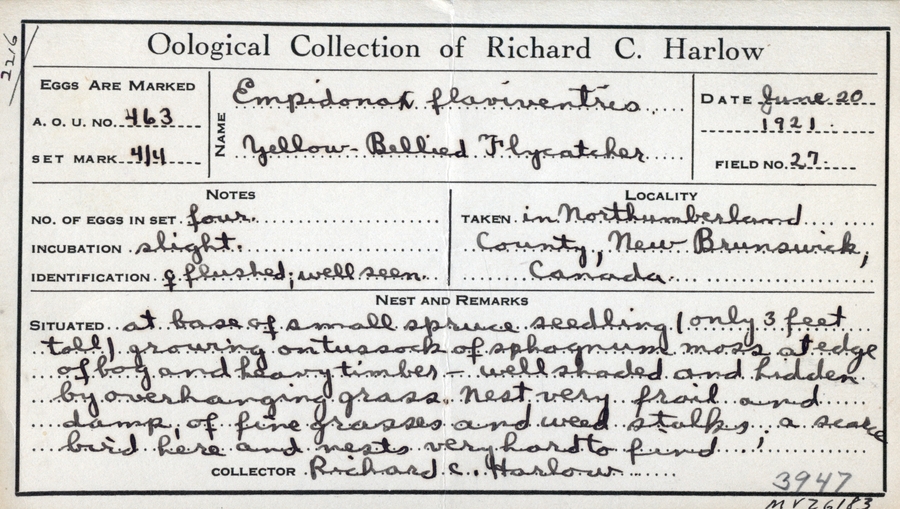 2216
Oological Collection of Richard C. Harlow
EGGS ARE MARKED
A. O. U. NO. 463
SET MARK 4/4
NAME
Empidonax flaviventris
Yellow-Bellied Flycatcher
DATE June 20
1921.
FIELD NO. 27.
NOTES
NO. OF EGGS IN SET four.
INCUBATION slight.
IDENTIFICATION ♀ flushed; well seen.
LOCALITY
TAKEN in Northumberland
County, New Brunswick,
Canada.
NEST AND REMARKS
SITUATED at base of small spruce seedling (only 3 feet
tall) growing on tussock of sphagnum moss at edge
of bog and heavy timber - well shaded and hidden
by overhanging grass. Nest very frail and
damp, of fine grasses and weed stalks; a scarce
bird here and nests very hard to find.
COLLECTOR Richard C. Harlow
3947
MVZ6183